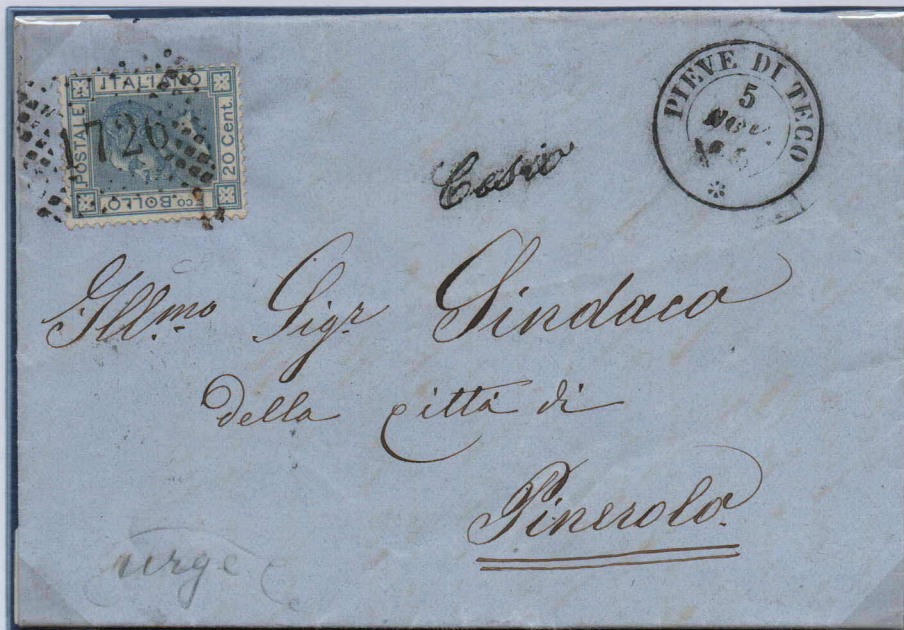 ITALIANO
POSTALE
20 Cent.
CO. BOLLO
1726
PIEVE DI TECO
5
NOV.
Cosio
Ill.mo Sigr Sindaco
della città di
Pinerolo.
urge